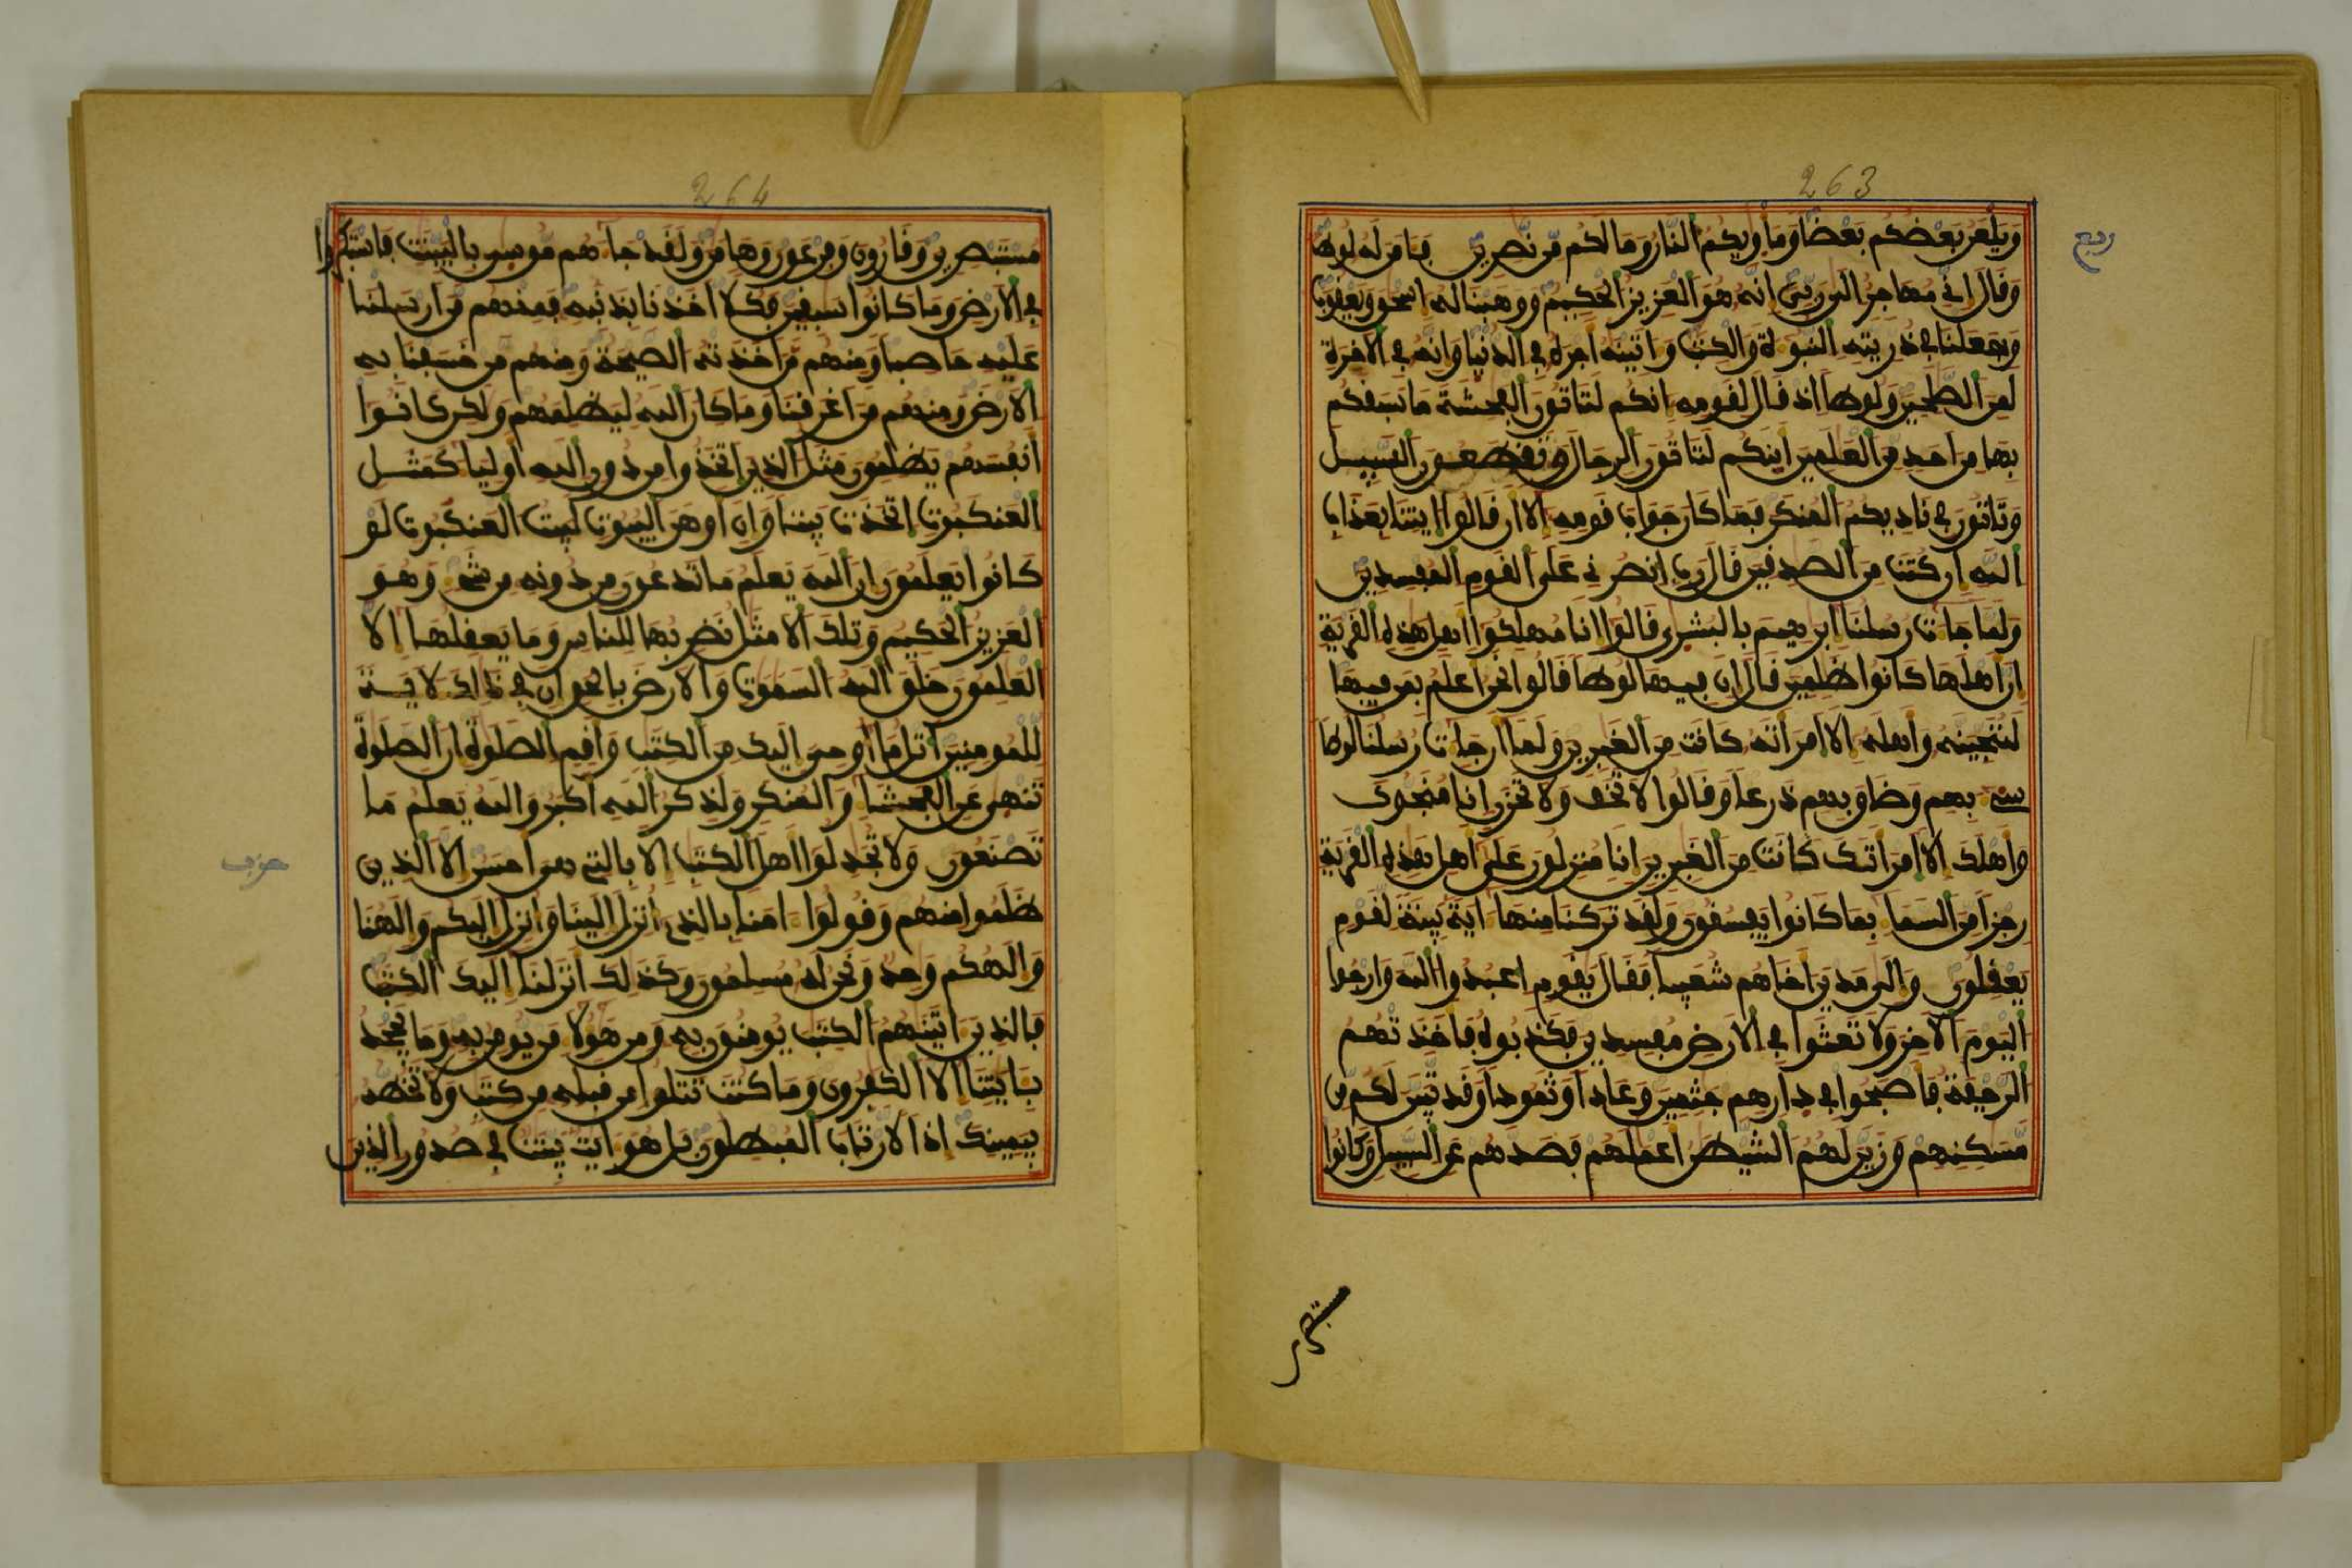 263
ربع
وَيَلْعَنُ بَعْضُكُم بَعْضًا وَمَأْوِيكُمُ النَّارُ وَمَا لَكُم مِّن نَّصِرِينَ فَـَٔامَنَ لَهُ لُوطٌ
وَقَالَ إِنِّي مُهَاجِرٌ إِلَى رَبِّيَ إِنَّهُ هُوَ الْعَزِيزُ الْحَكِيمُ وَوَهَبْنَا لَهُ إِسْحَقَ وَيَعْقُوبَ
وَجَعَلْنَا فِي ذُرِّيَّتِهِ النُّبُوءَةَ وَالْكِتَبَ وَءَاتَيْنَهُ أَجْرَهُ فِي الدُّنْيَا وَإِنَّهُ فِي الْأَخِرَةِ
لَمِنَ الصَّلِحِينَ وَلُوطًا إِذْ قَالَ لِقَوْمِهِ إِنَّكُمْ لَتَاتُونَ الْفَحِشَةَ مَا سَبَقَكُم
بِهَا مِنْ أَحَدٍ مِّنَ الْعَلَمِينَ أَئِنَّكُمْ لَتَاتُونَ الرِّجَالَ وَتَقْطَعُونَ السَّبِيلَ
وَتَاتُونَ فِي نَادِيكُمُ الْمُنكَرَ فَمَا كَانَ جَوَابَ قَوْمِهِ إِلَّا أَن قَالُوا ايتِنَا بِعَذَابِ
اللَّهِ إِن كُنتَ مِنَ الصَّدِقِينَ قَالَ رَبِّ انصُرْنِي عَلَى الْقَوْمِ الْمُفْسِدِينَ
وَلَمَّا جَاءَتْ رُسُلُنَا إِبْرَهِيمَ بِالْبُشْرِى قَالُوا إِنَّا مُهْلِكُوا أَهْلِ هَذِهِ الْقَرْيَةِ
إِنَّ أَهْلَهَا كَانُوا ظَلِمِينَ قَالَ إِنَّ فِيهَا لُوطًا قَالُوا نَحْنُ أَعْلَمُ بِمَن فِيهَا
لَنُنَجِّيَنَّهُ وَأَهْلَهُ إِلَّا امْرَأَتَهُ كَانَتْ مِنَ الْغَبِرِينَ وَلَمَّا أَن جَاءَتْ رُسُلُنَا لُوطًا
سِيءَ بِهِمْ وَضَاقَ بِهِمْ ذَرْعًا وَقَالُوا لَا تَخَفْ وَلَا تَحْزَنِ إِنَّا مُنَجُّوكَ
وَأَهْلَكَ إِلَّا امْرَأَتَكَ كَانَتْ مِنَ الْغَبِرِينَ إِنَّا مُنزِلُونَ عَلَى أَهْلِ هَذِهِ الْقَرْيَةِ
رِجْزًا مِّنَ السَّمَاءِ بِمَا كَانُوا يَفْسُقُونَ وَلَقَد تَّرَكْنَا مِنْهَا ءَايَةً بَيِّنَةً لِّقَوْمٍ
يَعْقِلُونَ وَإِلَى مَدْيَنَ أَخَاهُمْ شُعَيْبًا فَقَالَ يَقَوْمِ اعْبُدُوا اللَّهَ وَارْجُوا
الْيَوْمَ الْأَخِرَ وَلَا تَعْثَوْا فِي الْأَرْضِ مُفْسِدِينَ فَكَذَّبُوهُ فَأَخَذَتْهُمُ
الرَّجْفَةُ فَأَصْبَحُوا فِي دَارِهِمْ جَثِمِينَ وَعَادًا وَثَمُودًا وَقَد تَّبَيَّنَ لَكُم مِّن
مَّسَكِنِهِمْ وَزَيَّنَ لَهُمُ الشَّيْطَنُ أَعْمَلَهُمْ فَصَدَّهُمْ عَنِ السَّبِيلِ وَكَانُوا
مستبصرين
264
مُسْتَبْصِرِينَ وَقَارُونَ وَفِرْعَوْنَ وَهَامَنَ وَلَقَدْ جَاءَهُم مُّوسِى بِالْبَيِّنَتِ فَاسْتَكْبَرُوا
فِي الْأَرْضِ وَمَا كَانُوا سَبِقِينَ فَكُلًّا أَخَذْنَا بِذَنبِهِ فَمِنْهُم مَّنْ أَرْسَلْنَا
عَلَيْهِ حَاصِبًا وَمِنْهُم مَّنْ أَخَذَتْهُ الصَّيْحَةُ وَمِنْهُم مَّنْ خَسَفْنَا بِهِ
الْأَرْضَ وَمِنْهُم مَّنْ أَغْرَقْنَا وَمَا كَانَ اللَّهُ لِيَظْلِمَهُمْ وَلَكِن كَانُوا
أَنفُسَهُمْ يَظْلِمُونَ مَثَلُ الَّذِينَ اتَّخَذُوا مِن دُونِ اللَّهِ أَوْلِيَاءَ كَمَثَلِ
الْعَنكَبُوتِ اتَّخَذَتْ بَيْتًا وَإِنَّ أَوْهَنَ الْبُيُوتِ لَبَيْتُ الْعَنكَبُوتِ لَوْ
كَانُوا يَعْلَمُونَ إِنَّ اللَّهَ يَعْلَمُ مَا تَدْعُونَ مِن دُونِهِ مِن شَيْءٍ وَهُوَ
الْعَزِيزُ الْحَكِيمُ وَتِلْكَ الْأَمْثَلُ نَضْرِبُهَا لِلنَّاسِ وَمَا يَعْقِلُهَا إِلَّا
الْعَلِمُونَ خَلَقَ اللَّهُ السَّمَوَتِ وَالْأَرْضَ بِالْحَقِّ إِنَّ فِي ذَالِكَ لَأَيَةً
لِّلْمُومِنِينَ اتْلُ مَا أُوحِيَ إِلَيْكَ مِنَ الْكِتَبِ وَأَقِمِ الصَّلَوةَ إِنَّ الصَّلَوةَ
تَنْهِى عَنِ الْفَحْشَاءِ وَالْمُنكَرِ وَلَذِكْرُ اللَّهِ أَكْبَرُ وَاللَّهُ يَعْلَمُ مَا
تَصْنَعُونَ وَلَا تُجَدِلُوا أَهْلَ الْكِتَبِ إِلَّا بِالَّتِي هِيَ أَحْسَنُ إِلَّا الَّذِينَ
حزب
ظَلَمُوا مِنْهُمْ وَقُولُوا ءَامَنَّا بِالَّذِي أُنزِلَ إِلَيْنَا وَأُنزِلَ إِلَيْكُمْ وَإِلَهُنَا
وَإِلَهُكُمْ وَحِدٌ وَنَحْنُ لَهُ مُسْلِمُونَ وَكَذَلِكَ أَنزَلْنَا إِلَيْكَ الْكِتَبَ
فَالَّذِينَ ءَاتَيْنَهُمُ الْكِتَبَ يُومِنُونَ بِهِ وَمِنْ هَؤُلَاءِ مَن يُومِنُ بِهِ وَمَا يَجْحَدُ
بِـَٔايَتِنَا إِلَّا الْكَفِرُونَ وَمَا كُنتَ تَتْلُوا مِن قَبْلِهِ مِن كِتَبٍ وَلَا تَخُطُّهُ
بِيَمِينِكَ إِذًا لَّارْتَابَ الْمُبْطِلُونَ بَلْ هُوَ ءَايَتٌ بَيِّنَتٌ فِي صُدُورِ الَّذِينَ